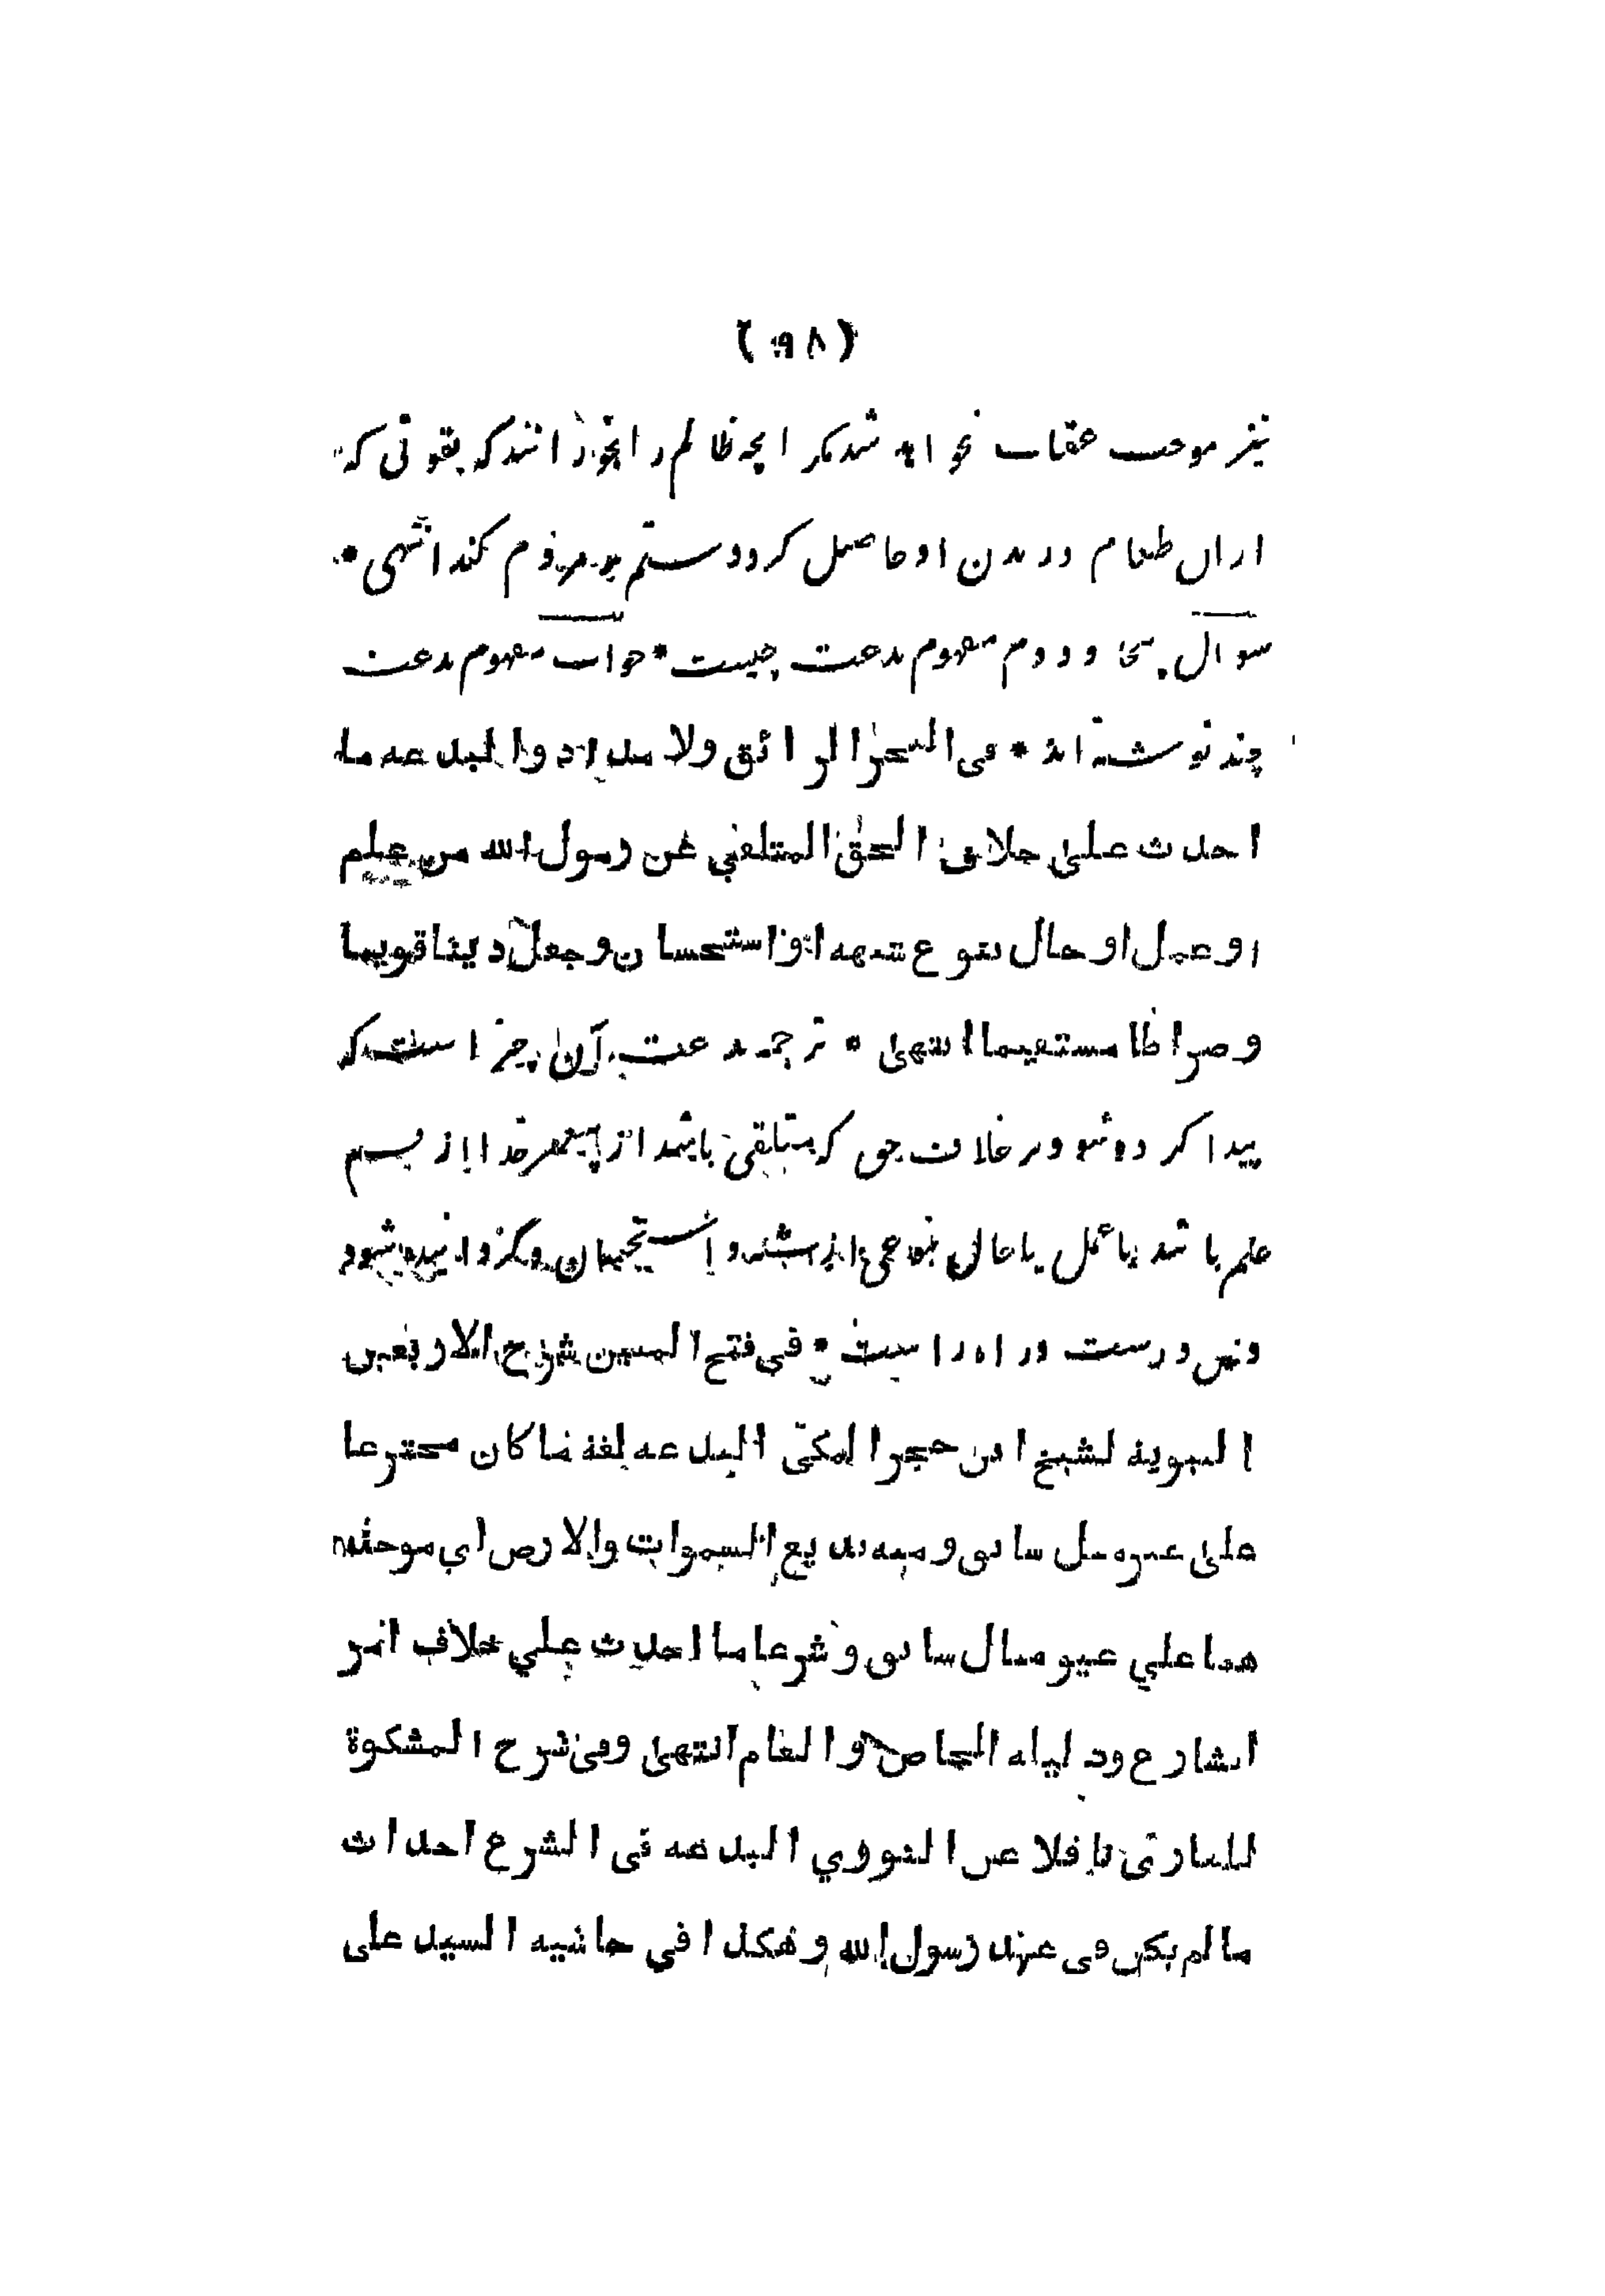 ( ٩٨ )
نیز موجب عقاب نخواهد شد مگر آنچه ظالم را بخورانند که بقوتی که
ازان طعام در بدن او حاصل گردد ستم بر مردم کند انتهی *
سوال سی و دوم مفهوم بدعت چیست * جواب مفهوم بدعت
چند نوشته اند * فی البحر الرائق والبدعه ما
احدث علی خلاف الحق المتلقی عن رسول الله من علم
او عمل او حال بنوع شبهه او استحسان وجعل دینا قویما
وصراطا مستقیما انتهی * ترجمه بدعت آن چیز است که
پیدا کرده شود بر خلاف حق که متلقی باشد از پیغمبر خدا از قسم
علم باشد یا عمل یا حال بنوعی از شبه و استحسان و گردانیده شود
دین درست و راه راست * فی فتح المبین شرح الاربعین
النبویه لشیخ ابن حجر المکی البدعه لغة ما کان مخترعا
علی غیر مثال سابق ومنه بدیع السموات والارض ای موجد
هما علی غیر مثال سابق وشرعا ما احدث علی خلاف امر
الشارع ودلیله الخاص والعام انتهی وفی شرح المشکوة
للقاری ناقلا عن النووی البدعه فی الشرع احداث
مالم یکن فی عهد رسول الله وهکذا فی حاشیه السید علی